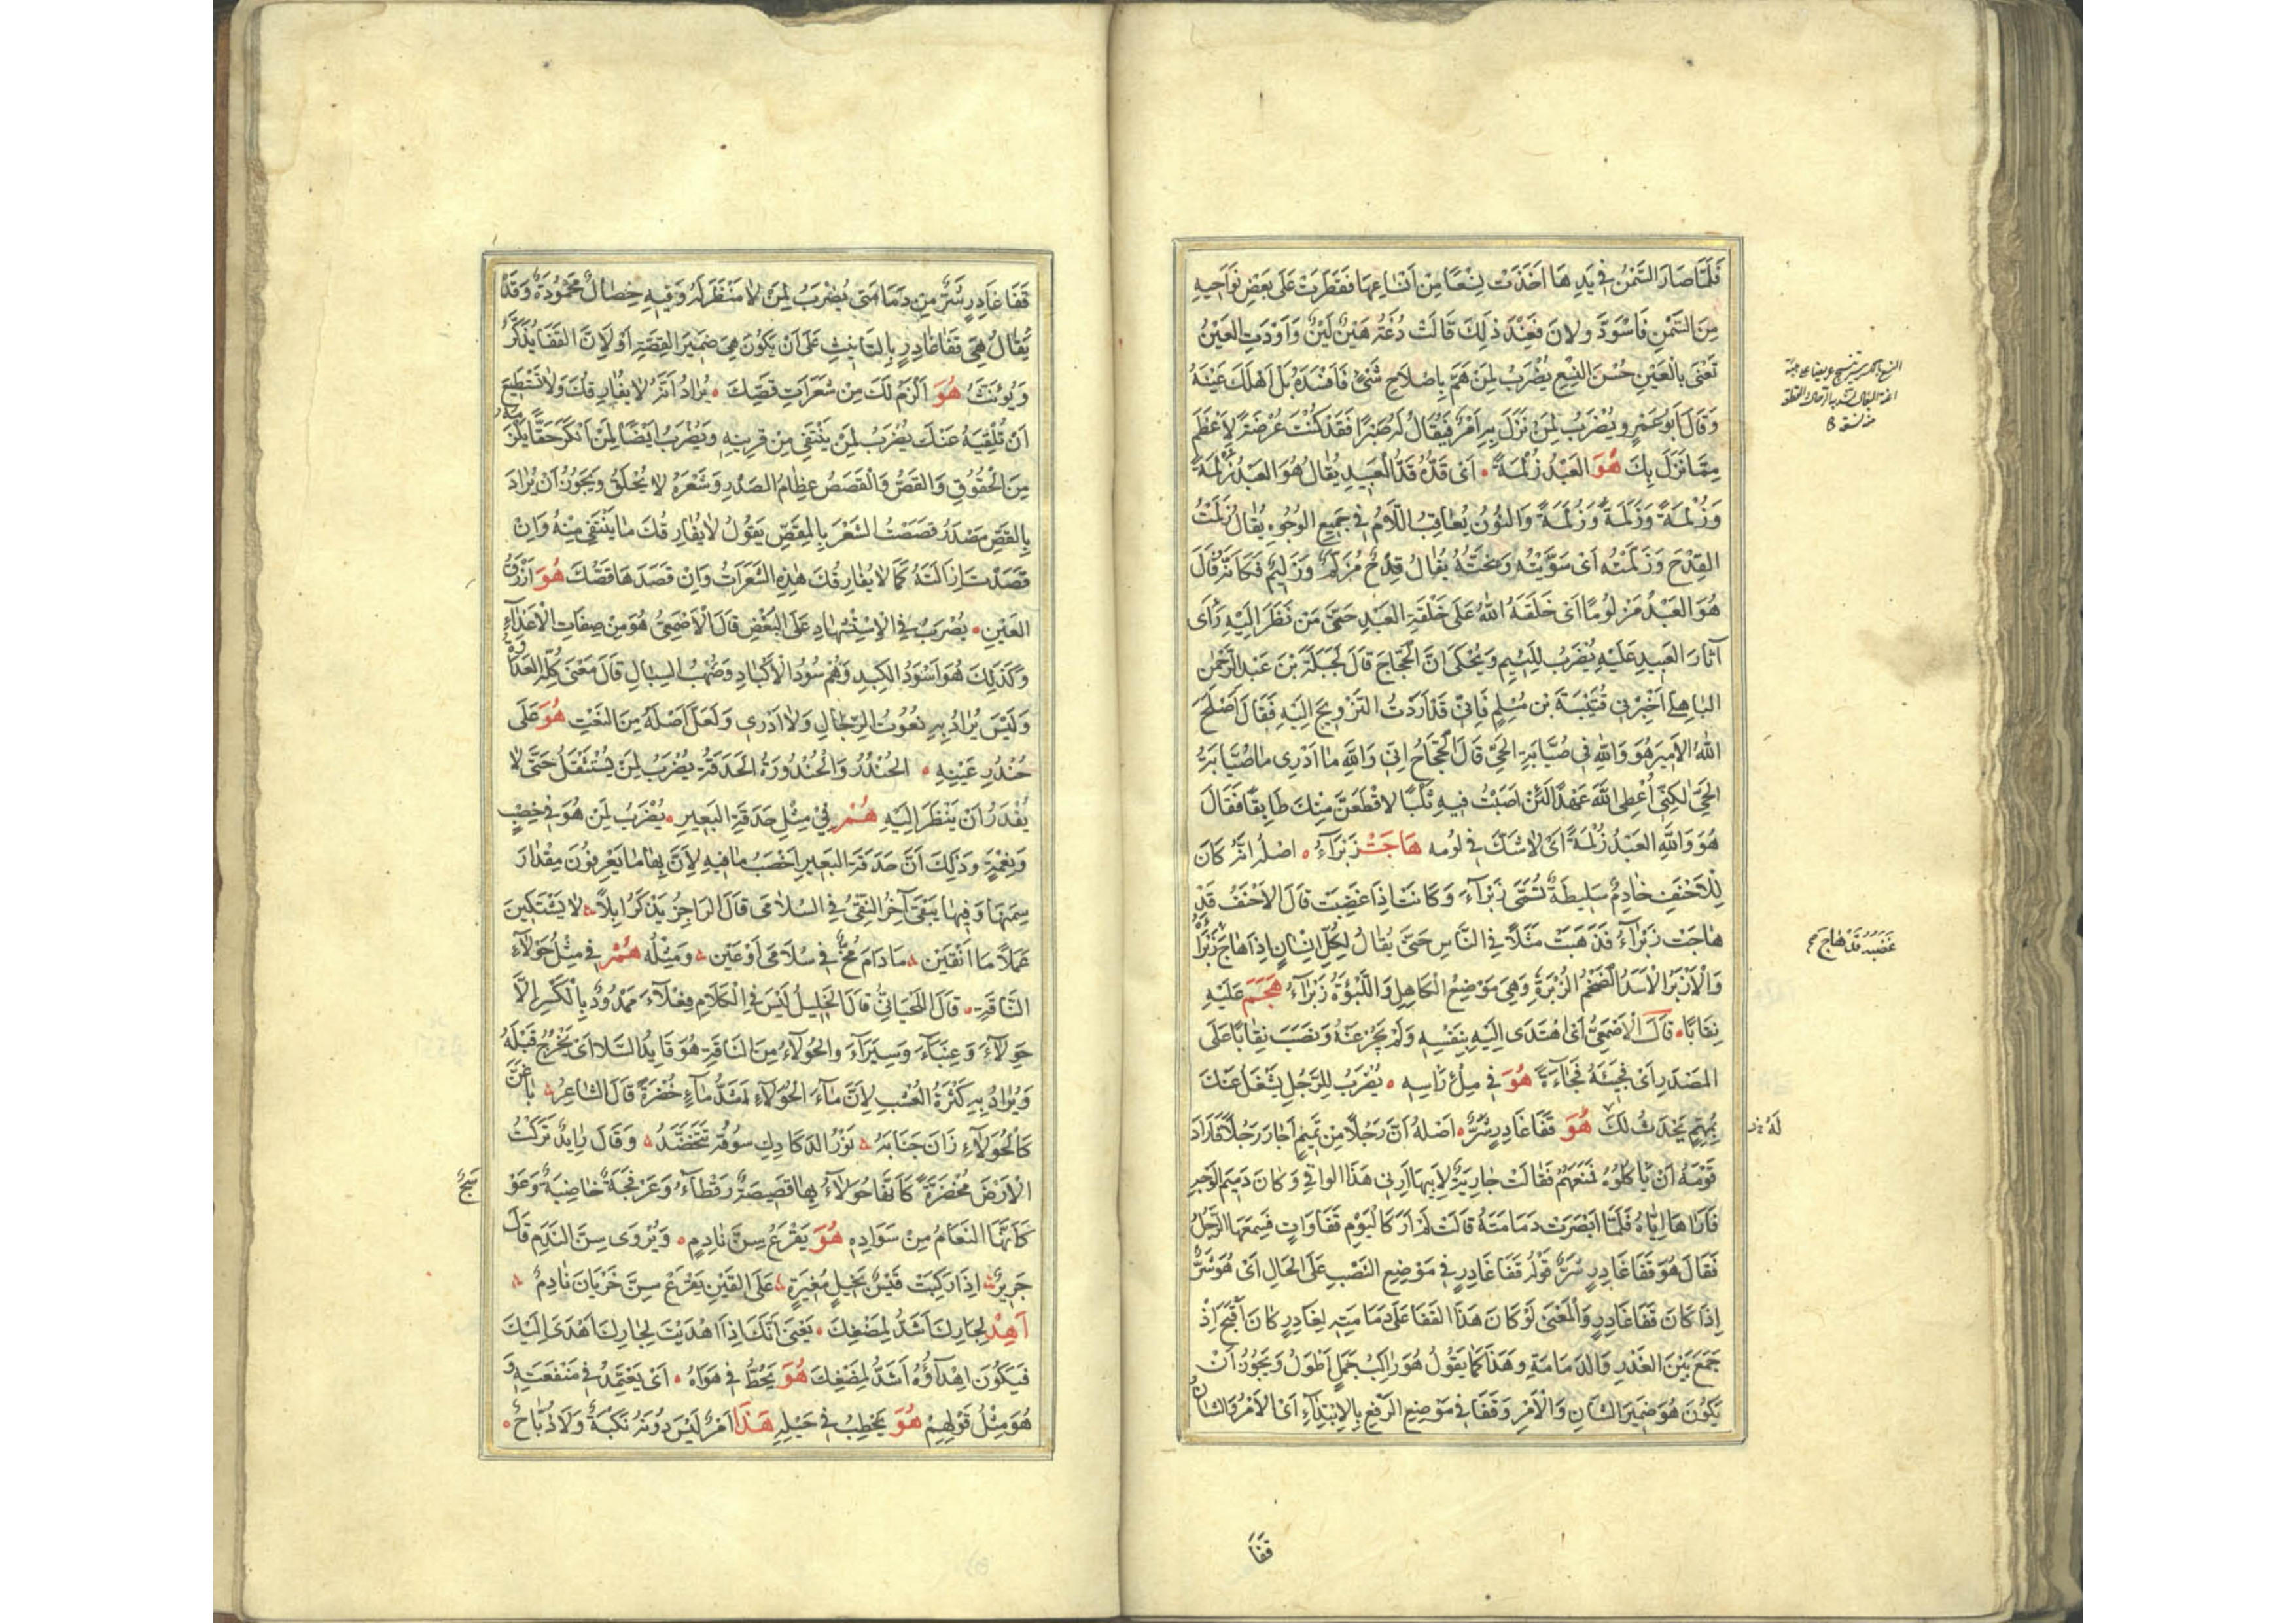 فَلَمَّا صَارَ السَّمْنُ فِي يَدِهَا اَخَذَتْ نِسْعًا مِنْ اَنْسَاعِهَا فَقَطَرَتْ عَلَى بَعْضِ نَوَاحِيهِ
مِنَ السَّمْنِ فَاسْوَدَّ وَلَانَ فَعِنْدَ ذٰلِكَ قَالَتْ دُغَةُ هَيْنٌ لَيْنٌ وَاَوْدَتِ العَيْنُ
تَعْنَى بِالْعَيْنِ حُسْنَ النِّسْعِ يُضْرَبُ لِمَنْ هَمَّ بِاِصْلَاحِ شَىْءٍ فَاَفْسَدَهُ بَلْ اَهْلَكَ عَيْنَهُ
وَقَالَ اَبُو عَمْرٍو يُضْرَبُ لِمَنْ نَزَلَ بِهِ اَمْرٌ فَيُقَالُ لَهُ صَبْرًا فَقَدْ كُنْتَ عُرْضَةً لِاَعْظَمَ
مِمَّا نَزَلَ بِكَ هُوَ العَبْدُ زُلْمَةً اَىْ قَدُّهُ قَدُّ الْعَبِيدِ يُقَالُ هُوَ العَبْدُ زُلْمَةً
وَزُلْمَةً وَزَلَمَةً وَزُلَمَةً وَالنُّونُ يُعَاقِبُ اللَّامَ فِي جَمِيعِ الوُجُوهِ يُقَالُ زَلَمْتُ
القِدْحَ وَزَلَّمْتُهُ اَىْ سَوَّيْتُهُ وَنَحَتُّهُ يُقَالُ قِدْحٌ مُزَلَّمٌ وَزَلِيمٌ فَكَاَنَّهُ قَالَ
هُوَ العَبْدُ مَزْلُومًا اَىْ خَلَقَهُ اللهُ عَلَى خَلْقَةِ العَبْدِ حَتَّى مَنْ نَظَرَ اِلَيْهِ رَاَى
آثَارَ العَبِيدِ عَلَيْهِ يُضْرَبُ لِلَّئِيمِ وَيُحْكَى اَنَّ الْحَجَّاجَ قَالَ لِجَبَلَةَ بْنِ عَبْدِ الرَّحْمٰنِ
البَاهِلِيِّ اَخْبِرْنِي قُتَيْبَةَ بْنَ مُسْلِمٍ فَاِنِّي قَدْ اَرَدْتُ التَّزْوِيجَ اِلَيْهِ فَقَالَ اَصْلَحَ
اللهُ الاَمِيرَ هُوَ وَاللهِ فِي صُيَّابَةِ الحَىِّ قَالَ الْحَجَّاجُ اِنِّي وَاللهِ مَا اَدْرِي مَا صُيَّابَةُ
الحَىِّ لٰكِنِّي اُعْطِى اللهَ عَهْدًا لَئِنْ اَصَبْتُ فِيهِ ثَلْبًا لَاَقْطَعَنَّ مِنْكَ طَابِقًا فَقَالَ
هُوَ وَاللهِ العَبْدُ زُلْمَةً اَىْ لَا شَكَّ فِي لُومِهِ هَاجَتْ زَبْرَاءُ اصْلُهُ اَنَّهُ كَانَ
لِلْاَحْنَفِ خَادِمٌ سَلِيطَةٌ تُسَمَّى زَبْرَآءَ وَكَانَتْ اِذَا غَضِبَتْ قَالَ الْاَحْنَفُ قَدْ
هَاجَتْ زَبْرَآءُ فَذَهَبَتْ مَثَلًا فِي النَّاسِ حَتَّى يُقَالُ لِكُلِّ اِنْسَانٍ اِذَا هَاجَ زَبْرَاؤُهُ
وَالْاَزْبَرُ الْاَسَدُ الضَّخْمُ الزُّبْرَةِ وَهِيَ مَوْضِعُ الْكَاهِلِ وَاللَّبُؤَةُ زَبْرَآءُ هَجَمَ عَلَيْهِ
نِقَابًا قَالَ الْاَصْمَعِيُّ اَىْ اهْتَدَى اِلَيْهِ بِنَفْسِهِ وَلَمْ يَجُزْ عَنْهُ وَنَصَبَ نِقَابًا عَلَى
المَصْدَرِ اَىْ فَجِئَهُ فُجَاءَةً هُوَ فِي مِلْ رَاْسِهِ يُضْرَبُ لِلرَّجُلِ يَشْغَلُ عَنْكَ
بِمُهِمٍّ يَحْدُثُ لَكَ هُوَ قَفَا غَادِرٍ شَرٌّ اَصْلُهُ اَنَّ رَجُلًا مِنْ تَمِيمٍ اَجَارَ رَجُلًا فَاَرَادَ
قَوْمُهُ اَنْ يَاْكُلُوهُ فَمَنَعَهُمْ فَقَالَتْ جَارِيَةٌ لِاَبِيهَا اَرِنِي هَذَا الوَافِي وَكَانَ دَمِيمَ الوَجْهِ
فَاَرَاهَا اِيَّاهُ فَلَمَّا اَبْصَرَتْ دَمَامَتَهُ قَالَتْ لَمْ اَرَ كَالْيَوْمِ قَفَا وَافٍ فَسَمِعَهَا الرَّجُلُ
فَقَالَ هُوَ قَفَا غَادِرٍ شَرٌّ قَوْلُهُ قَفَا غَادِرٍ فِي مَوْضِعِ النَّصْبِ عَلَى الحَالِ اَىْ هُوَ شَرٌّ
اِذَا كَانَ قَفَا غَادِرٍ وَالْمَعْنَى لَوْ كَانَ هَذَا القَفَا عَلَى دَمَامَتِهِ لِغَادِرٍ كَانَ اَقْبَحَ اِذْ
جَمَعَ بَيْنَ الغَدْرِ وَالدَّمَامَةِ وَهَذَا كَمَا يَقُولُ هُوَ رَاكِبُ جَمَلٍ اَطْوَلُ وَيَجُوزُ اَنْ
يَكُونَ هُوَ ضَمِيرَ الشَّانِ وَالْاَمْرِ وَقَفَا فِي مَوْضِعِ الرَّفْعِ بِالْاِبْتِدَآءِ اَىِ الْاَمْرُ وَالشَّانُ
غَضَبُهُ قَدْ هَاجَ
لَهُ
قَفَا
قَفَا غَادِرٍ شَرٌّ مِنْ دَمَامَتِي يُضْرَبُ لِمَنْ لَا مَنْظَرَ لَهُ وَفِيهِ خِصَالٌ مَحْمُودَةٌ وَقَدْ
يُقَالُ هِيَ قَفَا غَادِرٍ بِالتَّانِيثِ عَلَى اَنْ يَكُونَ هِيَ ضَمِيرَ القِصَّةِ اَوْ لِاَنَّ القَفَا يُذَكَّرُ
وَيُؤَنَّثُ هُوَ اَلْزَمُ لَكَ مِنْ شَعَرَاتِ قَصِّكَ يُرَادُ اَنَّهُ لَا يُفَارِقُكَ وَلَا تَسْتَطِيعُ
اَنْ تُلْقِيَهُ عَنْكَ يُضْرَبُ لِمَنْ يَنْتَفِي مِنْ قَرِيبِهِ وَيُضْرَبُ اَيْضًا لِمَنْ اَنْكَرَ حَقًّا يَلْزَمُهُ
مِنَ الْحُقُوقِ وَالقَصُّ وَالْقَصَصُ عِظَامُ الصَّدْرِ وَشَعْرُهُ لَا يُحْلَقُ وَيَجُوزُ اَنْ يُرَادَ
بِالقَصِّ مَصْدَرُ قَصَصْتُ الشَّعْرَ بِالْمِقَصِّ يَقُولُ لَا يُفَارِقُكَ مَا يَنْتَفِي مِنْهُ وَاِنْ
قَصَدْتَ اِزَالَتَهُ كَمَا لَا يُفَارِقُكَ هٰذِهِ الشَّعَرَاتُ وَاِنْ قَصَدَهَا قَصُّكَ هُوَ اَزْرَقُ
العَيْنِ يُضْرَبُ فِي الْاِسْتِشْهَادِ عَلَى البُغْضِ قَالَ الْاَصْمَعِيُّ هُوَ مِنْ صِفَاتِ الْاَعْدَآءِ
وَكَذٰلِكَ هُوَ اَسْوَدُ الكَبِدِ وَهُمْ سُودُ الْاَكْبَادِ وَصُهْبُ السِّبَالِ قَالَ مَعْنَى كُلِّهِ العَدَاوَةُ
وَلَيْسَ يُرَادُ بِهِ نُعُوتُ الرِّجَالِ وَلَا اَدْرِي وَلَعَلَّ اَصْلَهُ مِنَ النَّعْتِ هُوَ عَلَى
حُنْدُرِ عَيْنِهِ الحُنْدُرُ وَالْحُنْدُورَةُ الحَدَقَةُ يُضْرَبُ لِمَنْ يُسْتَثْقَلُ حَتَّى لَا
يُقْدَرُ اَنْ يُنْظَرَ اِلَيْهِ هُمْ فِي مِثْلِ حَدَقَةِ البَعِيرِ يُضْرَبُ لِمَنْ هُوَ فِي خِصْبٍ
وَنِعْمَةٍ وَذٰلِكَ اَنَّ حَدَقَةَ البَعِيرِ اَخْصَبُ مَا فِيهِ لِاَنَّ بِهَا يَعْرِفُونَ مِقْدَارَ
سِمَنِهَا وَفِيهَا يَبْقَى آخِرُ النِّقْيِ وَفِي السُّلَامَى قَالَ الرَّاجِزُ يَذْكُرُ اِبِلًا لَا يَشْتَكِينَ
عَمَلًا مَا اَنْقَيْنَ مَا دَامَ مُخٌّ فِي سُلَامَى اَوْ عَيْنٍ وَمِثْلُهُ هُمْ فِي مِثْلِ حُوَلَآءِ
النَّاقَةِ قَالَ اللِّحْيَانِيُّ قَالَ الخَلِيلُ لَيْسَ فِي الْكَلَامِ فِعَلَآءُ مَمْدُودٌ بِالْكَسْرِ اِلَّا
حِوَلَآءُ وَعِنَبَآءُ وَسِيَرَآءُ وَالحُوَلَآءُ مِنَ النَّاقَةِ هُوَ قَايِدُ السَّلَا اَىْ يَخْرُجُ قَبْلَهُ
وَيُرَادُ بِهِ كَثْرَةُ العُشْبِ لِاَنَّ مَآءَ الحُوَلَآءِ اَشَدُّ مَاءٍ خُضْرَةً قَالَ الشَّاعِرُ بِاَغَنَّ
كَالْحُوَلَآءِ زَانَ جَنَابَهُ نَوْرُ الدَّكَادِكِ سُوقُهُ تَتَخَضَّدُ وَقَالَ رَايِدٌ تَرَكْتُ
الْاَرْضَ مُخْضَرَّةً كَاَنَّهَا حُوَلَآءُ بِهَا قَصِيصَةٌ رَقْطَآءُ وَعَرْفَجَةٌ خَاضِبَةٌ وَعَوْسَجٌ
كَاَنَّهَا النَّعَامُ مِنْ سَوَادِهِ هُوَ يَقْرَعُ سِنَّ نَادِمٍ وَيُرْوَى سِنَّ النَّدَمِ قَالَ
جَرِيرٌ اِذَا رَكِبَتْ قَيْسٌ بِخَيْلٍ مُغِيرَةٍ عَلَى القَيْنِ يَقْرَعْ سِنَّ خَزْيَانَ نَادِمٍ
اَهْدِ لِجَارِكَ اَشَدُّ لِمَضْغِكَ يَعْنِي اَنَّكَ اِذَا اَهْدَيْتَ لِجَارِكَ اَهْدَى اِلَيْكَ
فَيَكُونُ اِهْدَاؤُهُ اَشَدَّ لِمَضْغِكَ هُوَ يَحُطُّ فِي هَوَاهُ اَىْ يَعْتَمِدُ فِي مَنْفَعَتِهِ وَ
هُوَ مِثْلُ قَوْلِهِمْ هُوَ يَحْطِبُ فِي حَبْلِهِ هَذَا اَمْرٌ لَيْسَ دُونَهُ نَكْبَةٌ وَلَا ذُبَاحٌ